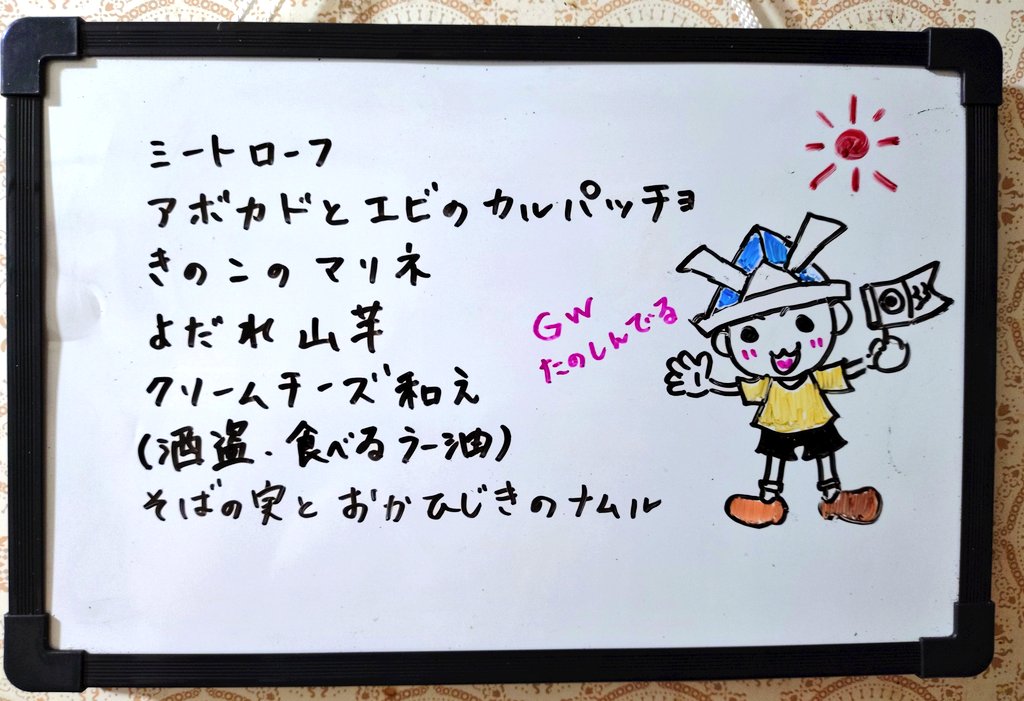 ミートローフ
アボカドとエビのカルパッチョ
きのこのマリネ
よだれ山芋
クリームチーズ和え
(酒盗・食べるラー油)
そばの実とおかひじきのナムル
GW
たのしんでる